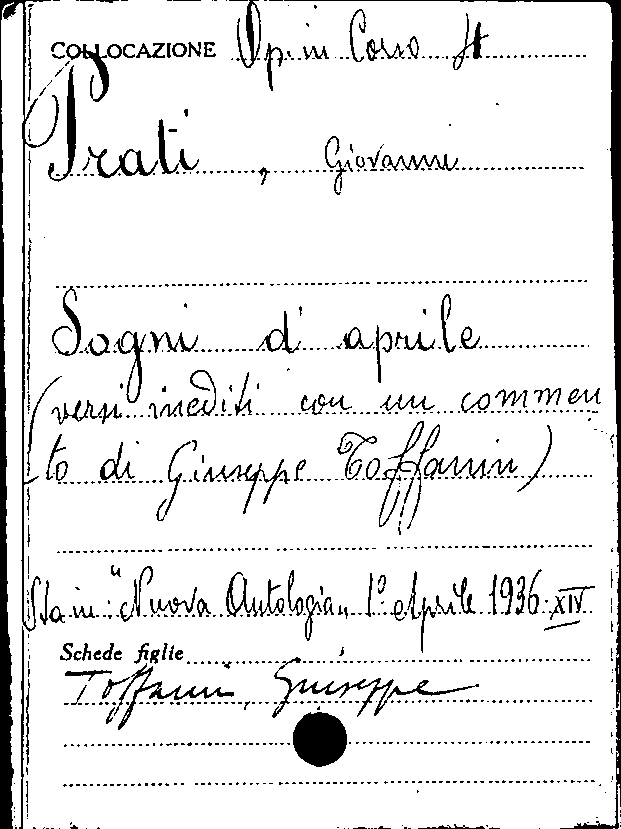 COLLOCAZIONE Op. in Corso
Prati , Giovanni
Sogni d'aprile
(versi inediti con un commen
to di Giuseppe Toffanin)
Sta in: "Nuova Antologia„ 1° Aprile 1936-XIV
Schede figlie
Toffanin, Giuseppe